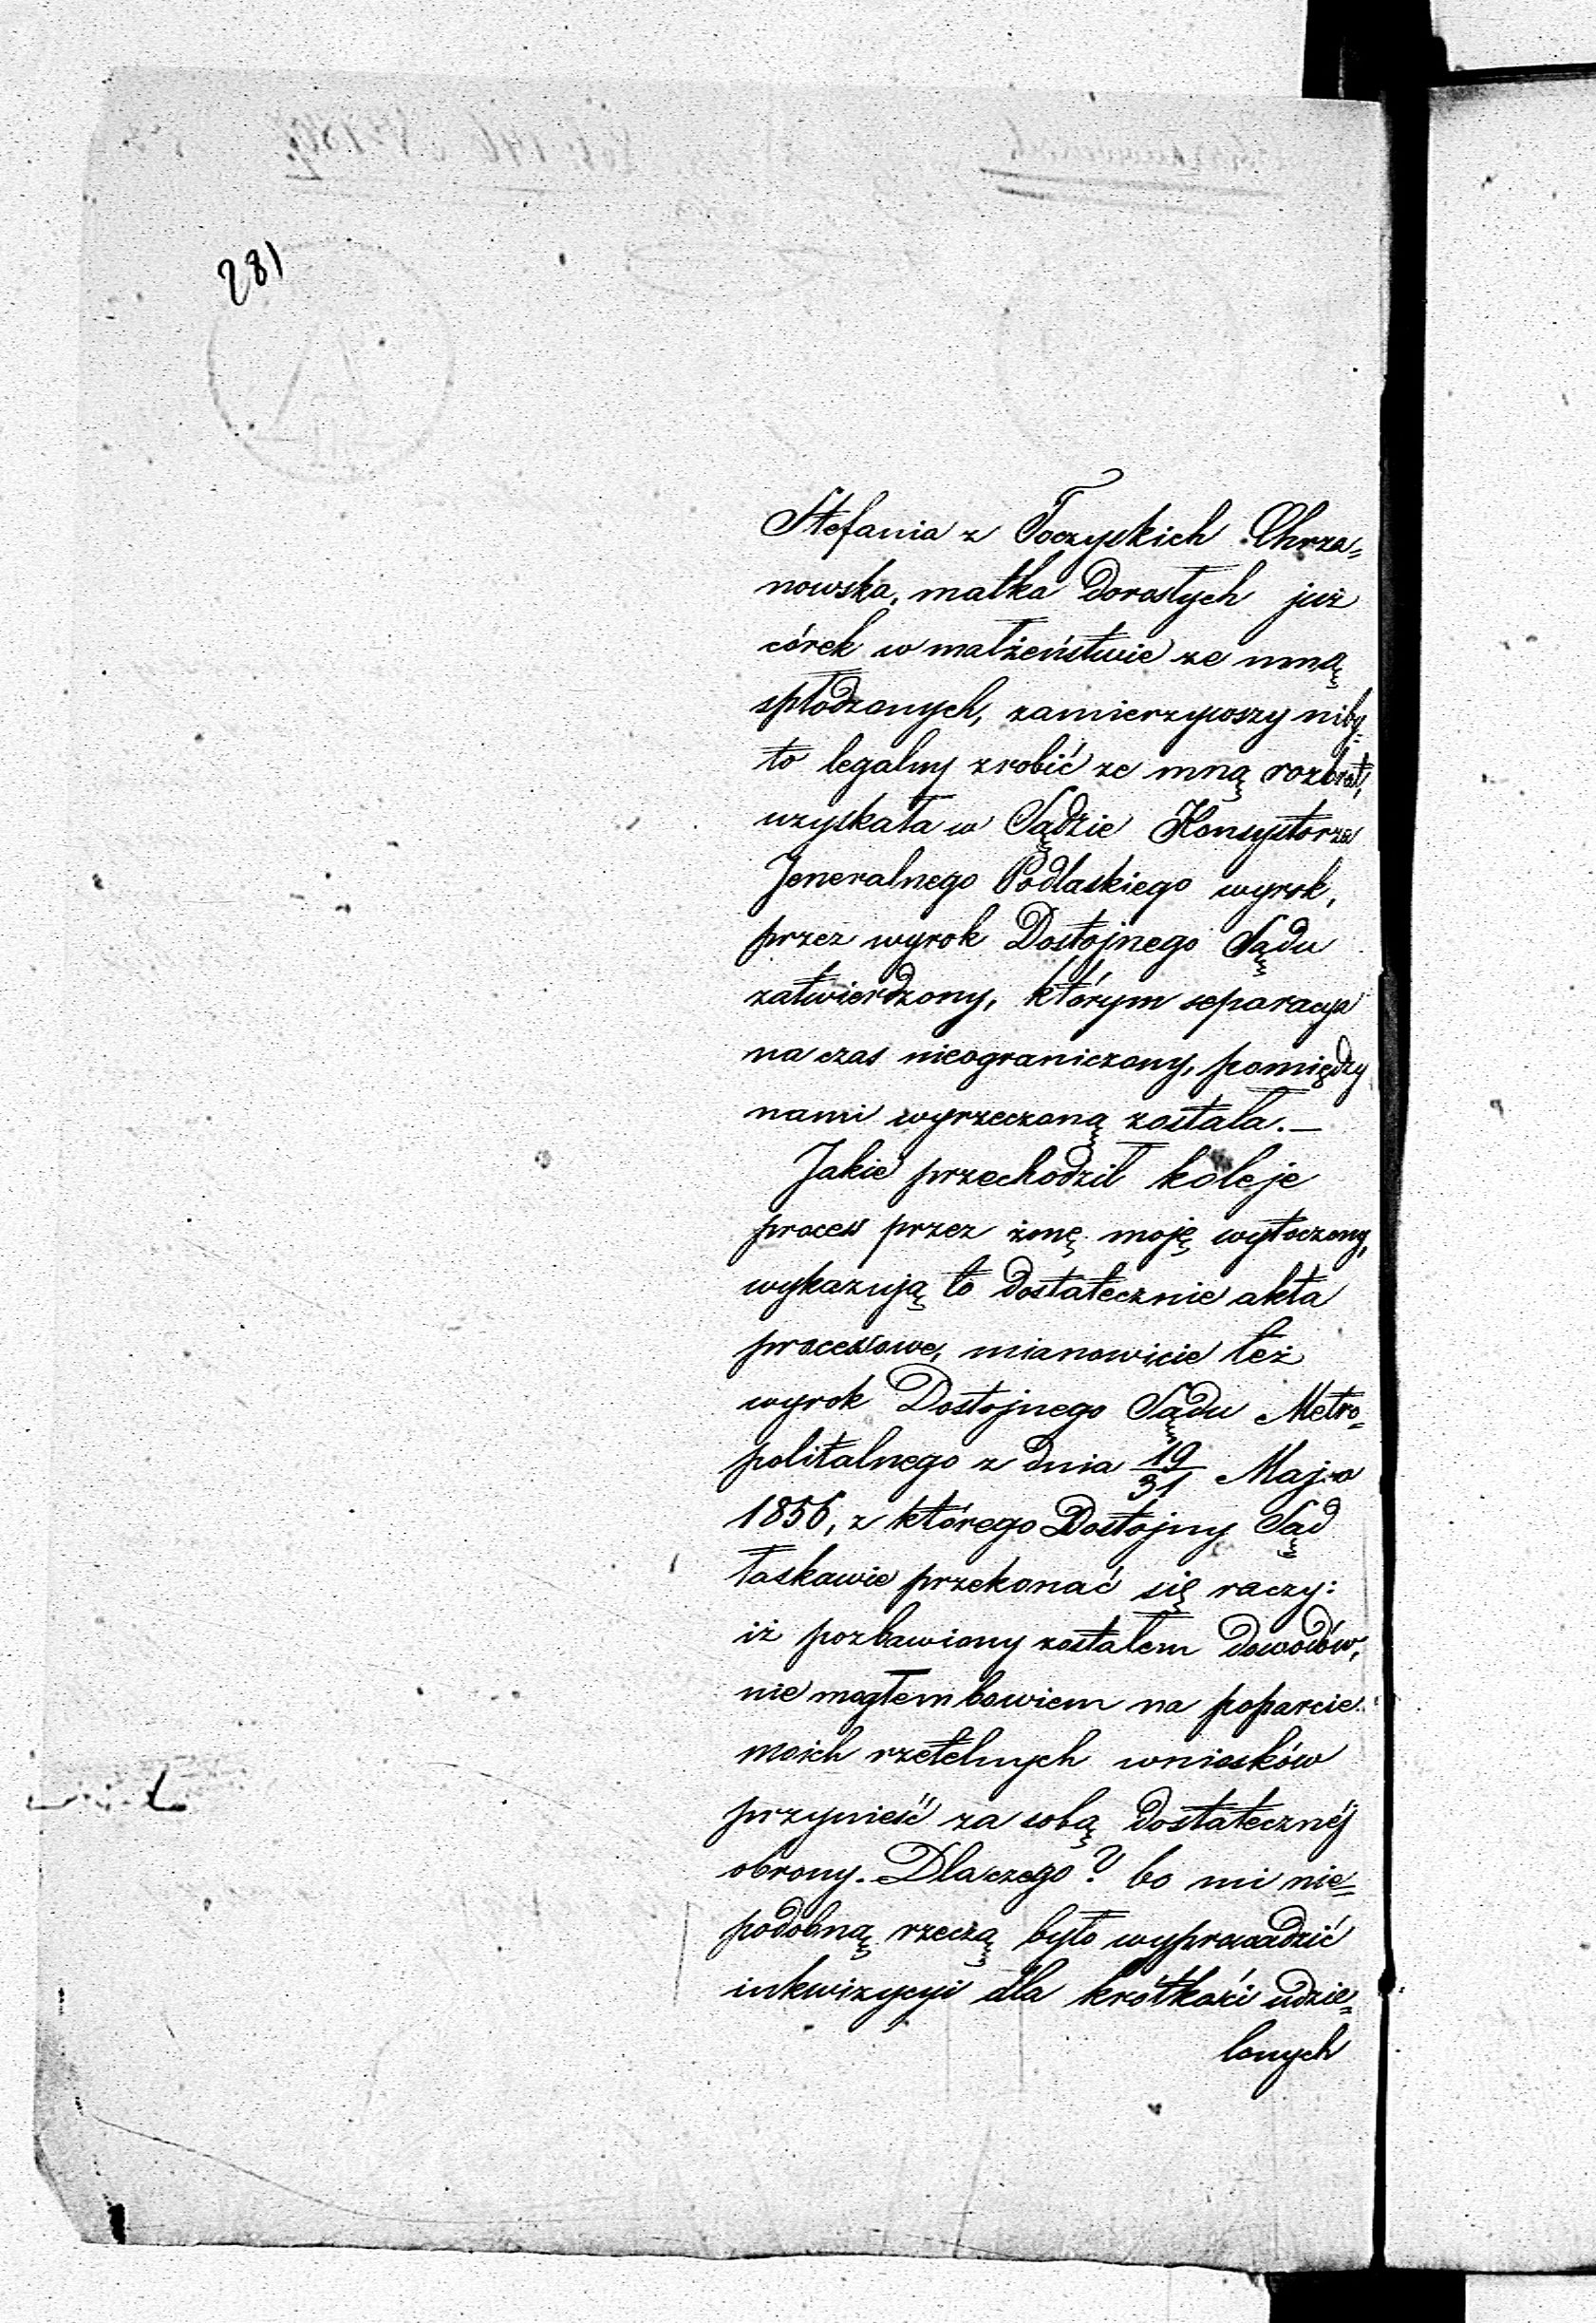 281
Stefania z Toczyskich Chrza=
nowska, matka dorosłych już
córek w małżeństwie ze mną
spłodzonych, zamierzywszy niby=
to legalny zrobić ze mną rozbrat,
uzyskała w Sądzie Konsystorza
Jeneralnego Podlaskiego wyrok,
przez wyrok Dostojnego Sądu
zatwierdzony, którym separacya
na czas nieograniczony, pomiędzy
nami wyrzeczoną została.—
Jakie przechodził koleje
process przez żonę moję wytoczony,
wykazują to dostatecznie akta
processowe, mianowicie też
wyrok Dostojnego Sądu Metro=
politalnego z dnia 19/31 Maja
1856, z którego Dostojny Sąd
łaskawie przekonać się raczy:
iż pozbawiony zostałem dowodów,
nie mogłem bowiem na poparcie
moich rzetelnych wniosków
przynieść za sobą dostatecznéj
obrony. Dlaczego? bo mi nie=
podobną rzeczą było wyprowadzić
inkwizycyi dla krótkości udzie=
lonych